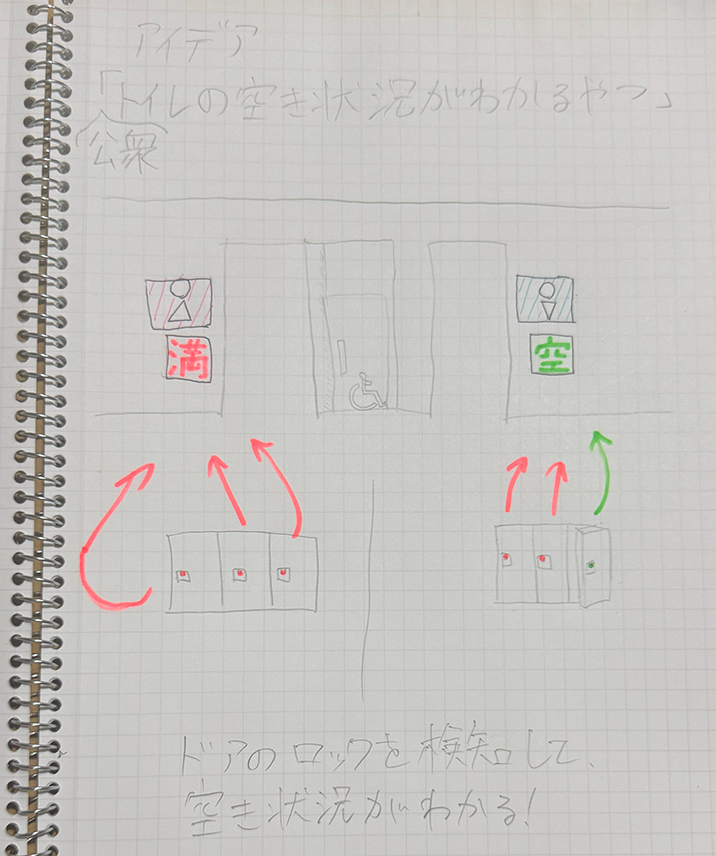 アイデア
「トイレの空き状況がわかるやつ」
公衆
満
空
ドアのロックを検知して、
空き状況がわかる!